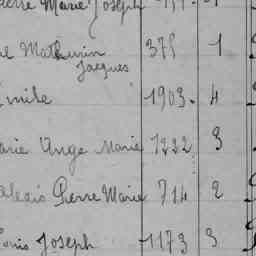 Marie Joseph
Mathurin 375 1
Jacques
Emile 1903. 4
Marie Ange Marie 1222 3
Alexis Pierre Marie 714 2
Louis Joseph 1173 3